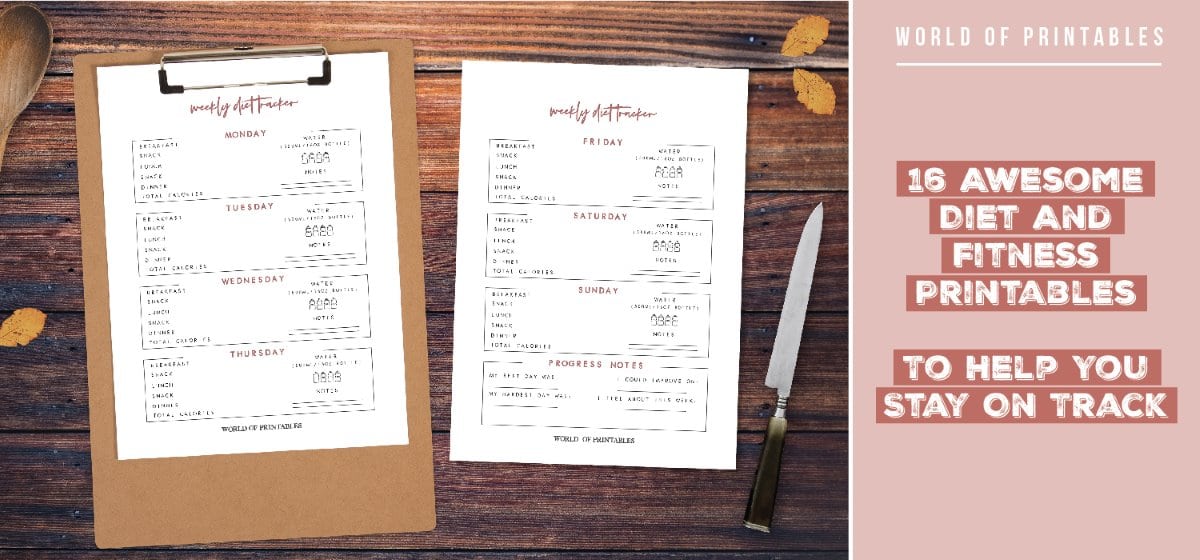 weekly diet tracker
MONDAY
BREAKFAST
SNACK
LUNCH
SNACK
DINNER
TOTAL CALORIES
WATER
(500ML/16OZ BOTTLE)
NOTES
TUESDAY
BREAKFAST
SNACK
LUNCH
SNACK
DINNER
TOTAL CALORIES
WATER
(500ML/16OZ BOTTLE)
NOTES
WEDNESDAY
BREAKFAST
SNACK
LUNCH
SNACK
DINNER
TOTAL CALORIES
WATER
(500ML/16OZ BOTTLE)
NOTES
THURSDAY
BREAKFAST
SNACK
LUNCH
SNACK
DINNER
TOTAL CALORIES
WATER
(500ML/16OZ BOTTLE)
NOTES
WORLD OF PRINTABLES
weekly diet tracker
FRIDAY
BREAKFAST
SNACK
LUNCH
SNACK
DINNER
TOTAL CALORIES
WATER
(500ML/16OZ BOTTLE)
NOTES
SATURDAY
BREAKFAST
SNACK
LUNCH
SNACK
DINNER
TOTAL CALORIES
WATER
(500ML/16OZ BOTTLE)
NOTES
SUNDAY
BREAKFAST
SNACK
LUNCH
SNACK
DINNER
TOTAL CALORIES
WATER
(500ML/16OZ BOTTLE)
NOTES
PROGRESS NOTES
MY BEST DAY WAS
I COULD IMPROVE ON:
MY HARDEST DAY WAS:
I FEEL ABOUT THIS WEEK:
WORLD OF PRINTABLES
WORLD OF PRINTABLES
16 AWESOME
DIET AND
FITNESS
PRINTABLES
TO HELP YOU
STAY ON TRACK